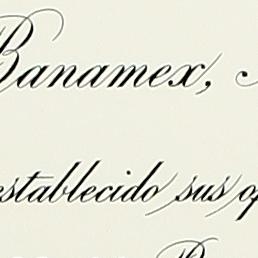 Banamex,
establecido sus op